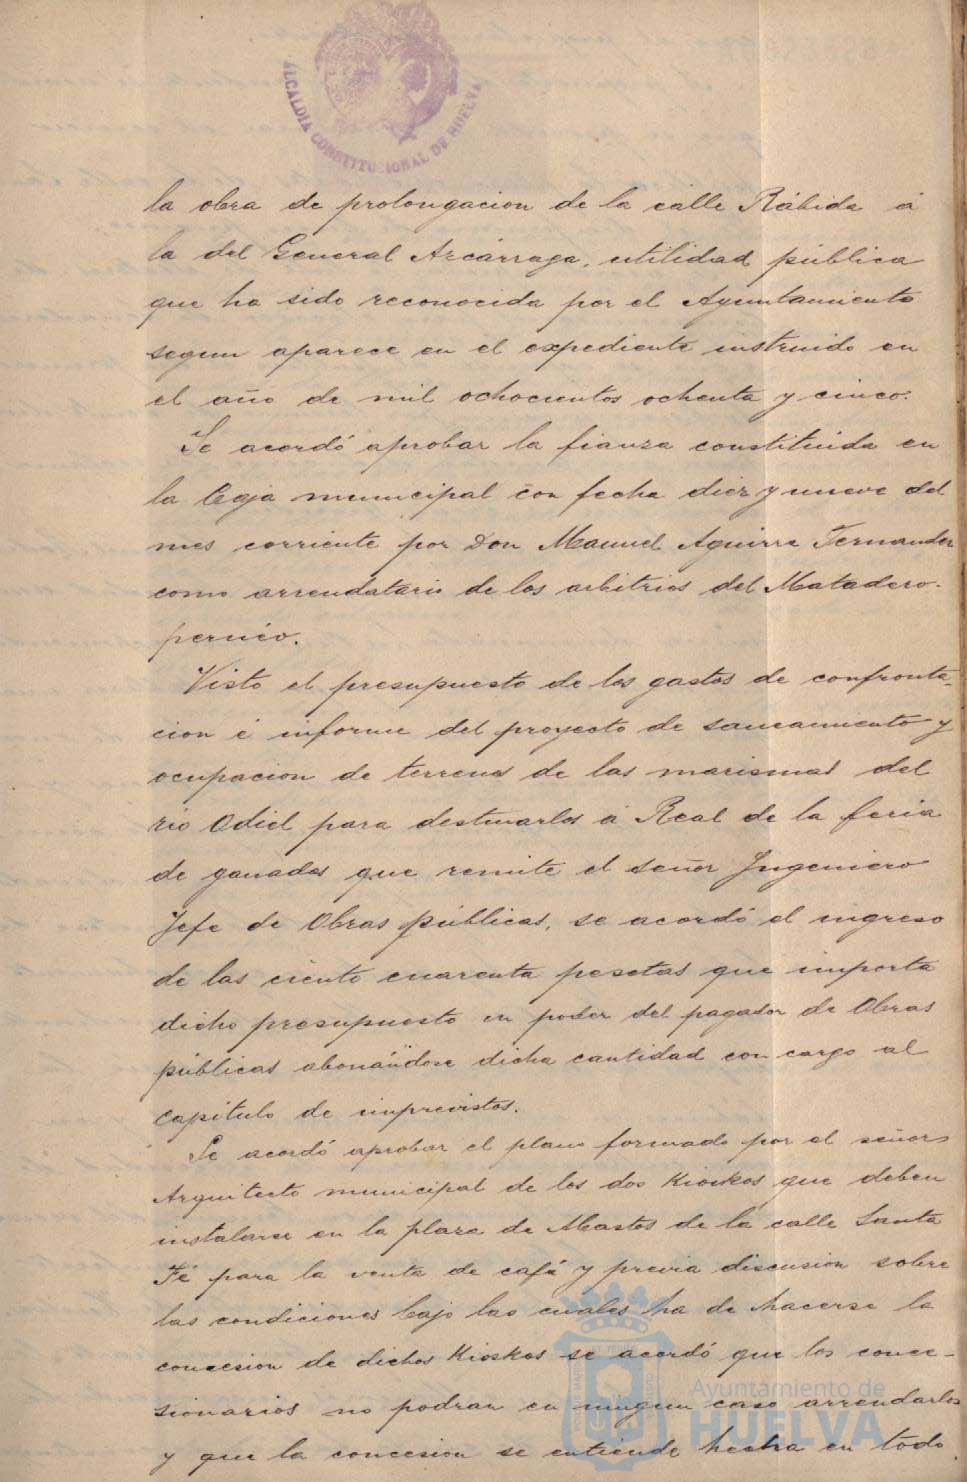 ALCALDIA CONSTITUCIONAL DE HUELVA
la obra de prolongacion de la calle Rábida á
la del General Azcárraga, utilidad pública
que ha sido reconocida por el Ayuntamiento
segun aparece en el expediente instruido en
el año de mil ochocientos ochenta y cinco.
Se acordó aprobar la fianza constituida en
la Caja municipal con fecha diez y nueve del
mes corriente por Don Manuel Aguirre Fernandez
como arrendatario de los arbitrios del Matadero
pernéo.
Visto el presupuesto de los gastos de confronta-
cion é informe del proyecto de saneamiento y
ocupacion de terrenos de las marismas del
rio Odiel para destinarlos á Real de la feria
de ganados que remite el señor Ingeniero
Jefe de Obras públicas, se acordó el ingreso
de las ciento cuarenta pesetas que importa
dicho presupuesto en poder del pagador de Obras
públicas abonándose dicha cantidad con cargo al
capitulo de imprevistos.
Se acordó aprobar el plano formado por el señor
Arquitecto municipal de los dos Kioskos que deben
instalarse en la plaza de Abastos de la calle Santa
Fé para la venta de café y previa discusion sobre
las condiciones bajo las cuales ha de hacerse la
concesion de dichos Kioskos se acordó que los conce-
sionarios no podran en ningun caso arrendarlos
y que la concesion se entiende hecha en todo
Ayuntamiento de
HUELVA